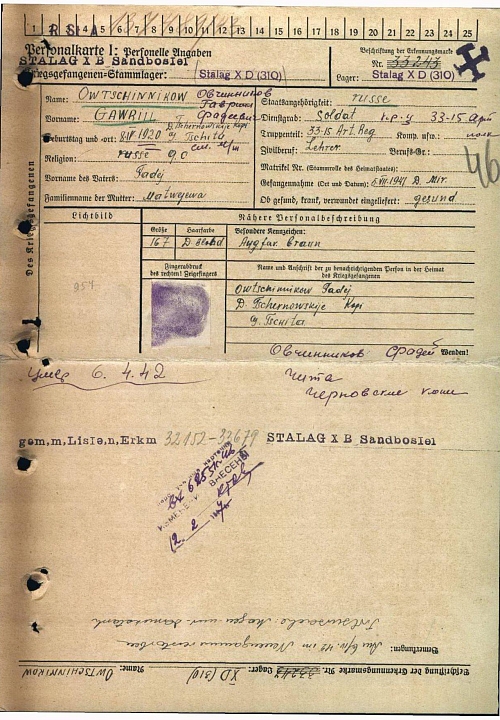 1 2 3 4 5 6 7 8 9 10 11 12 13 14 15 16 17 18 19 20 21 22 23 24 25
R S A
Personalkarte I: Personelle Angaben
Beschriftung der Erkennungsmarke
STALAG X B Sandbostel
Nr. 33243
Kriegsgefangenen-Stammlager: Stalag X D (310)
Lager: Stalag X D (310)
Des Kriegsgefangenen
Name: OWTSCHINNIKOW Овчинников
Staatsangehörigkeit: russe
Vorname: GAWRIIL Гавриил Фадеевич
Dienstgrad: Soldat 33-15 Арт
полк
Geburtstag und -ort: 1920 D. Tschernowskije Kopi g. Tschita
Truppenteil: 33-15 Art. Reg Komp. usw.:
Zivilberuf: Lehrer Berufs-Gr.:
Religion: russe
Matrikel Nr. (Stammrolle des Heimatstaates):
Vorname des Vaters: Fadej
Gefangennahme (Ort und Datum): VII. 1941 D. Mir
Familienname der Mutter: Matwejewa
Ob gesund, krank, verwundet eingeliefert: gesund
46
Lichtbild
Nähere Personalbeschreibung
Größe Haarfarbe Besondere Kennzeichen:
167 D. blond Augfar. braun
Fingerabdruck
des rechten! Zeigefingers
Name und Anschrift der zu benachrichtigenden Person in der Heimat
des Kriegsgefangenen
Owtschinnikow Fadej
D. Tschernowskije Kopi
g. Tschita
Овчинников Фадей
Wenden!
Умер 6. 4. 42
Чита
Черновские копи
gem,m,Liste,n,Erkm 32152-32679 STALAG X B Sandbostel
ВНЕСЕНЫ
Bemerkungen: Am 6/IV. 42 im Neuengamme verstorben
Todesursache: Magen und Darmkatarrh
Beschriftung der Erkennungsmarke Nr. 33243 Lager: X D (310) Name: OWTSCHINNIKOW